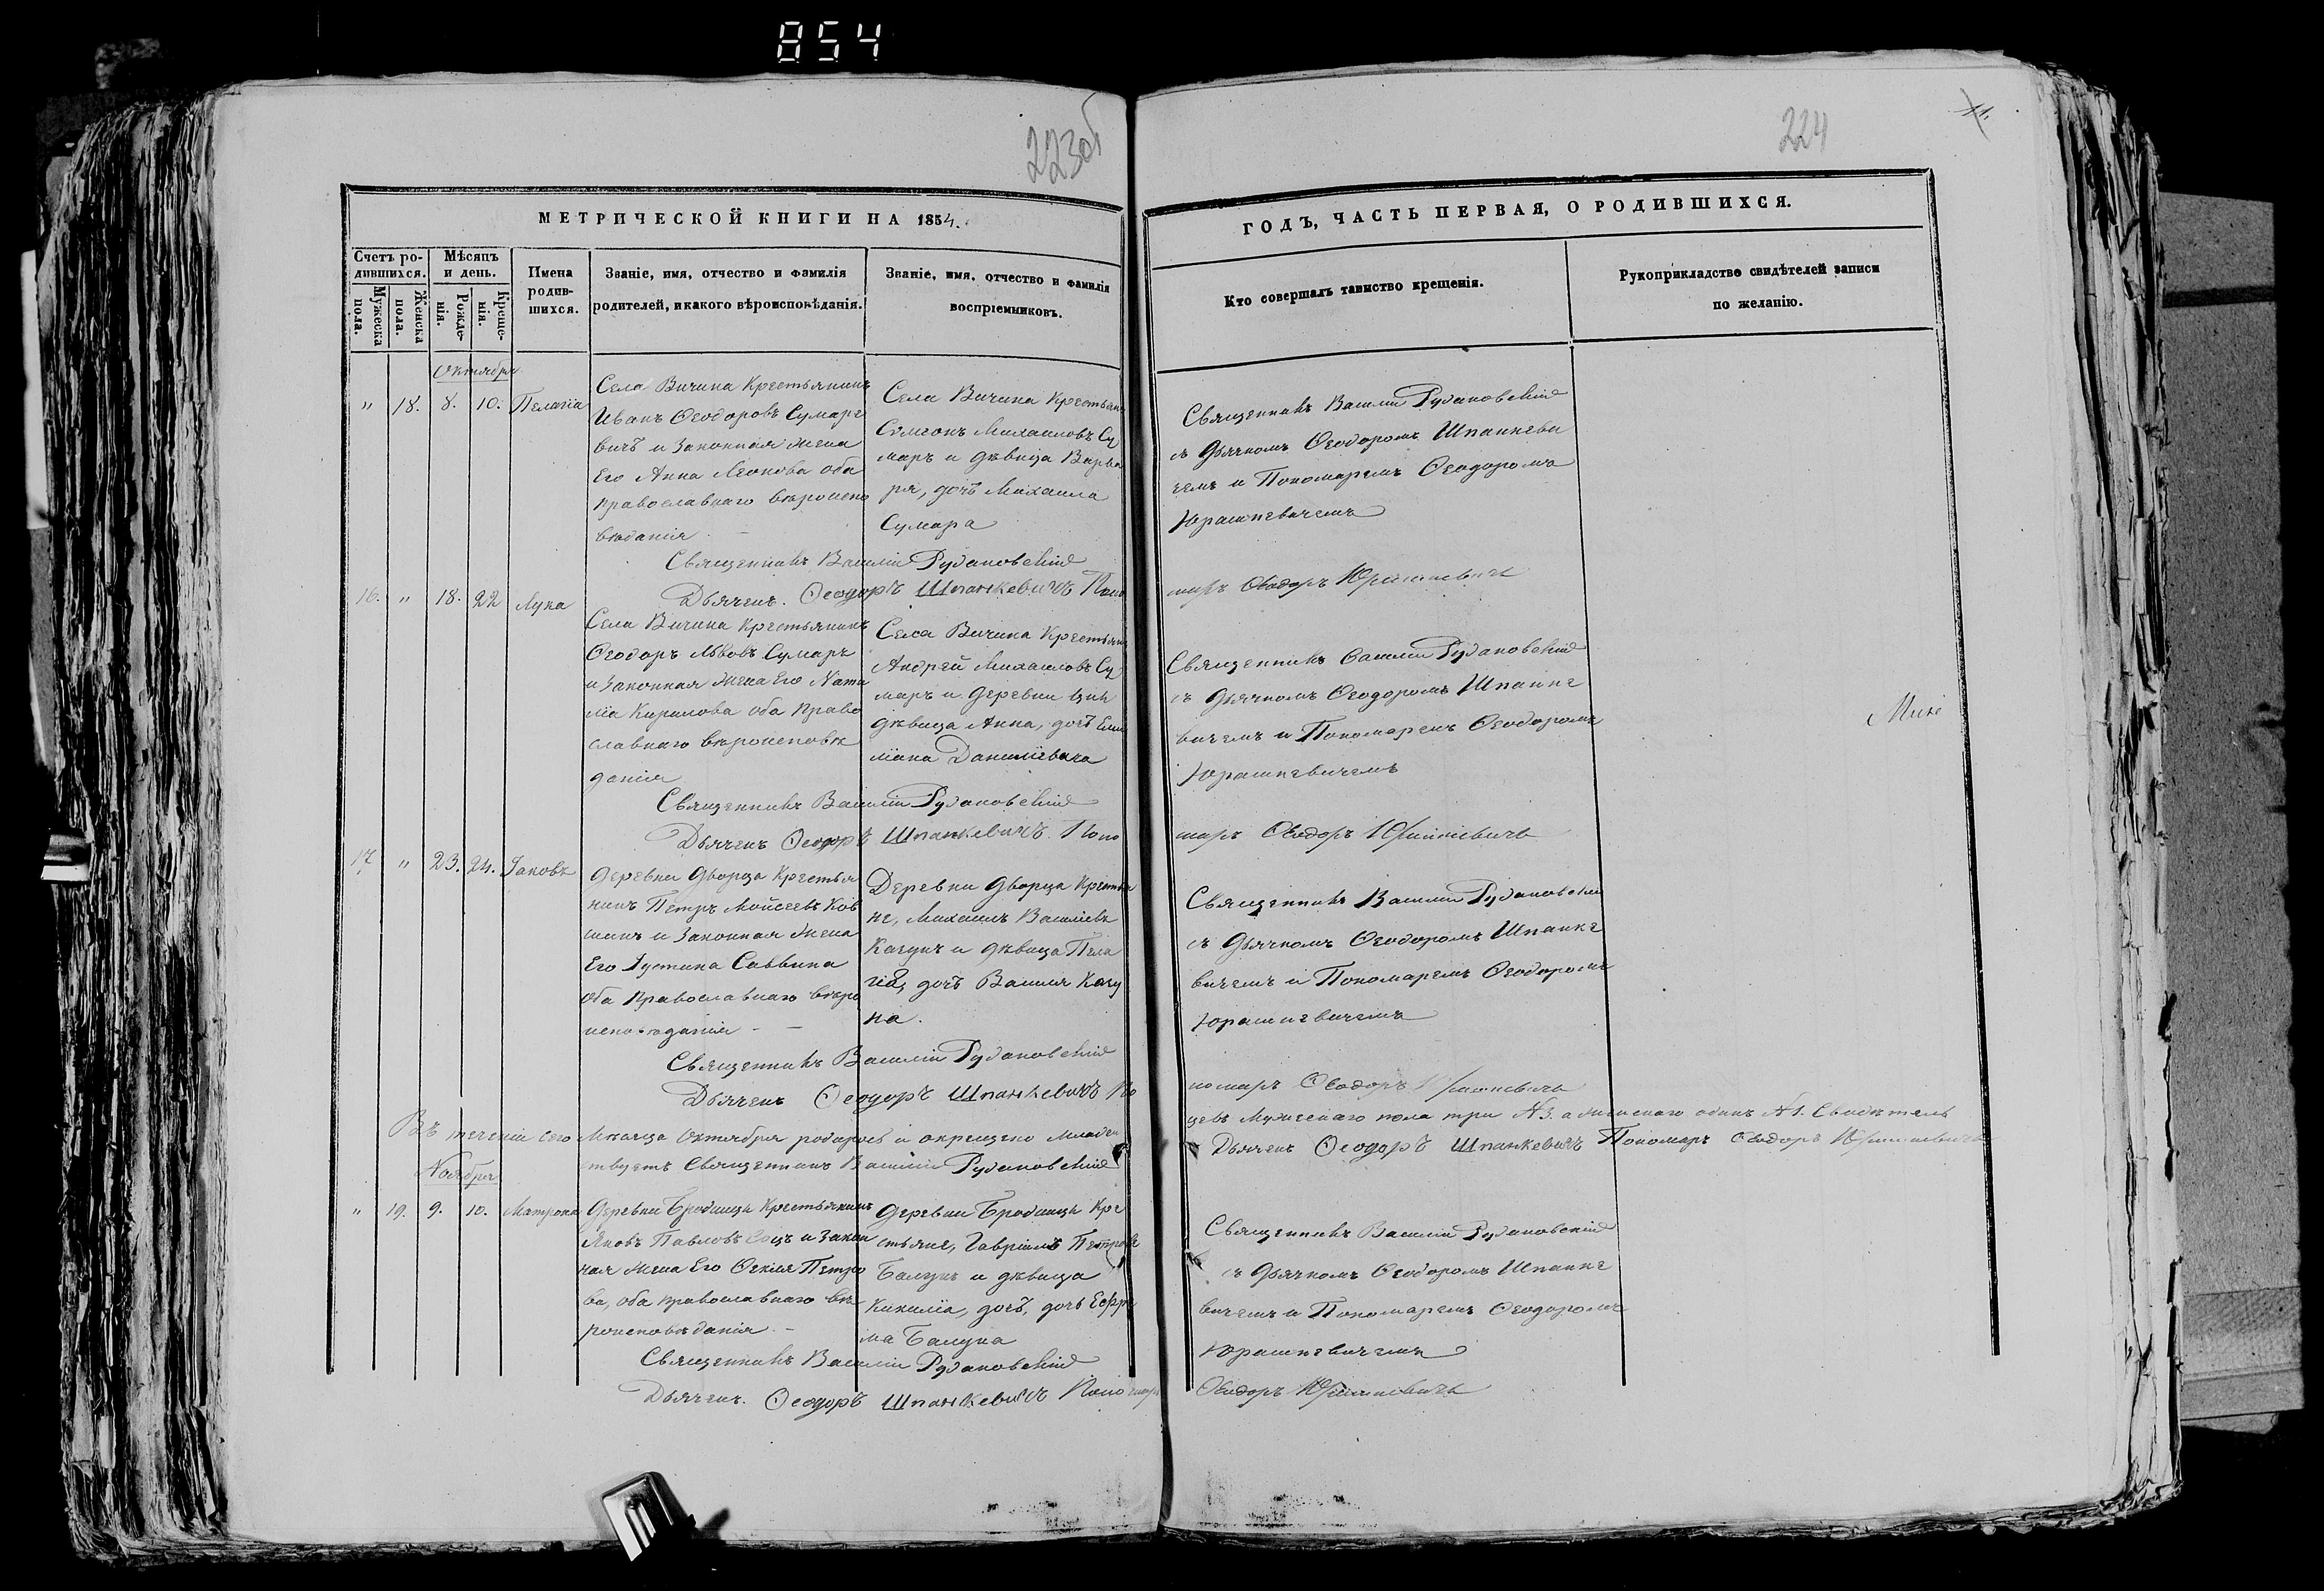 854
223об
224
11.
МЕТРИЧЕСКОЙ КНИГИ НА 1854.
ГОДЪ, ЧАСТЬ ПЕРВАЯ, О РОДИВШИХСЯ.
Счетъ ро-
дившихся.
Мужеска пола.
Женска пола.
Мѣсяцъ
и день.
Рожде-
нія.
Креще-
нія.
Имена
родив-
шихся.
Званіе, имя, отчество и фамилія
родителей, и какого вѣроисповѣданія.
Званіе, имя, отчество и фамилія
воспріемниковъ.
Кто совершалъ таинство крещенія.
Рукоприкладство свидѣтелей записи
по желанію.
Октября
" 18. 8. 10. Пелагіа
Села Вичина Крестьянинъ
Иванъ Ѳеодоровъ Сумаре
вичъ и Законная жена
Его Анна Леонова оба
православнаго вѣроиспо
вѣданія
Села Вичина Крестьян
Симеонъ Михаиловъ Су
маръ и дѣвица Варва
ра, дочь Михаила
Сумара
Священникъ Василій Рудановскій
съ Дьячкомъ Ѳеодоромъ Шпанкеви
чемъ и Пономаремъ Ѳеодоромъ
Юрашкевичемъ
Священникъ Василій Рудановскій
Дьячекъ. Ѳеодоръ Шпанкевичъ Поно
маръ Ѳеодоръ Юрашкевичъ
16. " 18. 22 Лука
Села Вичина Крестьянинъ
Ѳеодоръ Львовъ Сумаръ
и Законная жена Его Ната
лія Кирилова оба Право
славнаго вѣроисповѣ
данія
Села Вичина Крестьян
Андрей Михаиловъ Су
маръ и деревни
дѣвица Анна, дочь
Данилевича
Священникъ Василій Рудановскій
съ Дьячкомъ Ѳеодоромъ Шпанке
вичемъ и Пономаремъ Ѳеодоромъ
Юрашкевичемъ
Священникъ Василій Рудановскій
Дьячекъ Ѳеодоръ Шпанкевичъ. Поно
маръ Ѳеодоръ Юрашкевичъ
17 " 23. 24. Іаковъ
Деревни Дворца Крестья
нинъ Петръ Мойсеевъ Ков
и Законная жена
Его Іустина Саввина
оба православнаго вѣро
исповѣданія
Деревни Дворца Крестья
не, Михаилъ Василіевъ
Качунъ и дѣвица Пела
гія, дочь Василія Качу
на.
Священникъ Василій Рудановскій
съ Дьячкомъ Ѳеодоромъ Шпанке
вичемъ и Пономаремъ Ѳеодоромъ
Юрашкевичемъ
Священникъ Василій Рудановскій
Дьячекъ Ѳеодоръ Шпанкевичъ По
номаръ Ѳеодоръ Юрашкевичъ
Въ теченіи сего Мѣсяца Октября родилось и окрещено Младен
цевъ Мужескаго пола три №3. а женскаго одинъ №1. Свидѣтель
ствуетъ Священникъ Василій Рудановскій
Дьячекъ Ѳеодоръ Шпанкевичъ Пономаръ Ѳеодоръ Юрашкевичъ
Ноября
" 19. 9. 10. Матрона
Деревни Бродницы Крестьянинъ
Яковъ Павловъ и Закон
ная жена Его Ѳекла Петро
ва, оба православнаго вѣ
роисповѣданія
Деревни Бродницы Кре
стьяне, Гавріилъ Петровъ
Балунъ и дѣвица
Киликія, дочь, дочь Ефре
ма Балуна
Священникъ Василій Рудановскій
съ Дьячкомъ Ѳеодоромъ Шпанке
вичемъ и Пономаремъ Ѳеодоромъ
Юрашкевичемъ
Священникъ Василій Рудановскій
Дьячекъ. Ѳеодоръ Шпанкевичъ Пономаръ
Ѳеодоръ Юрашкевичъ